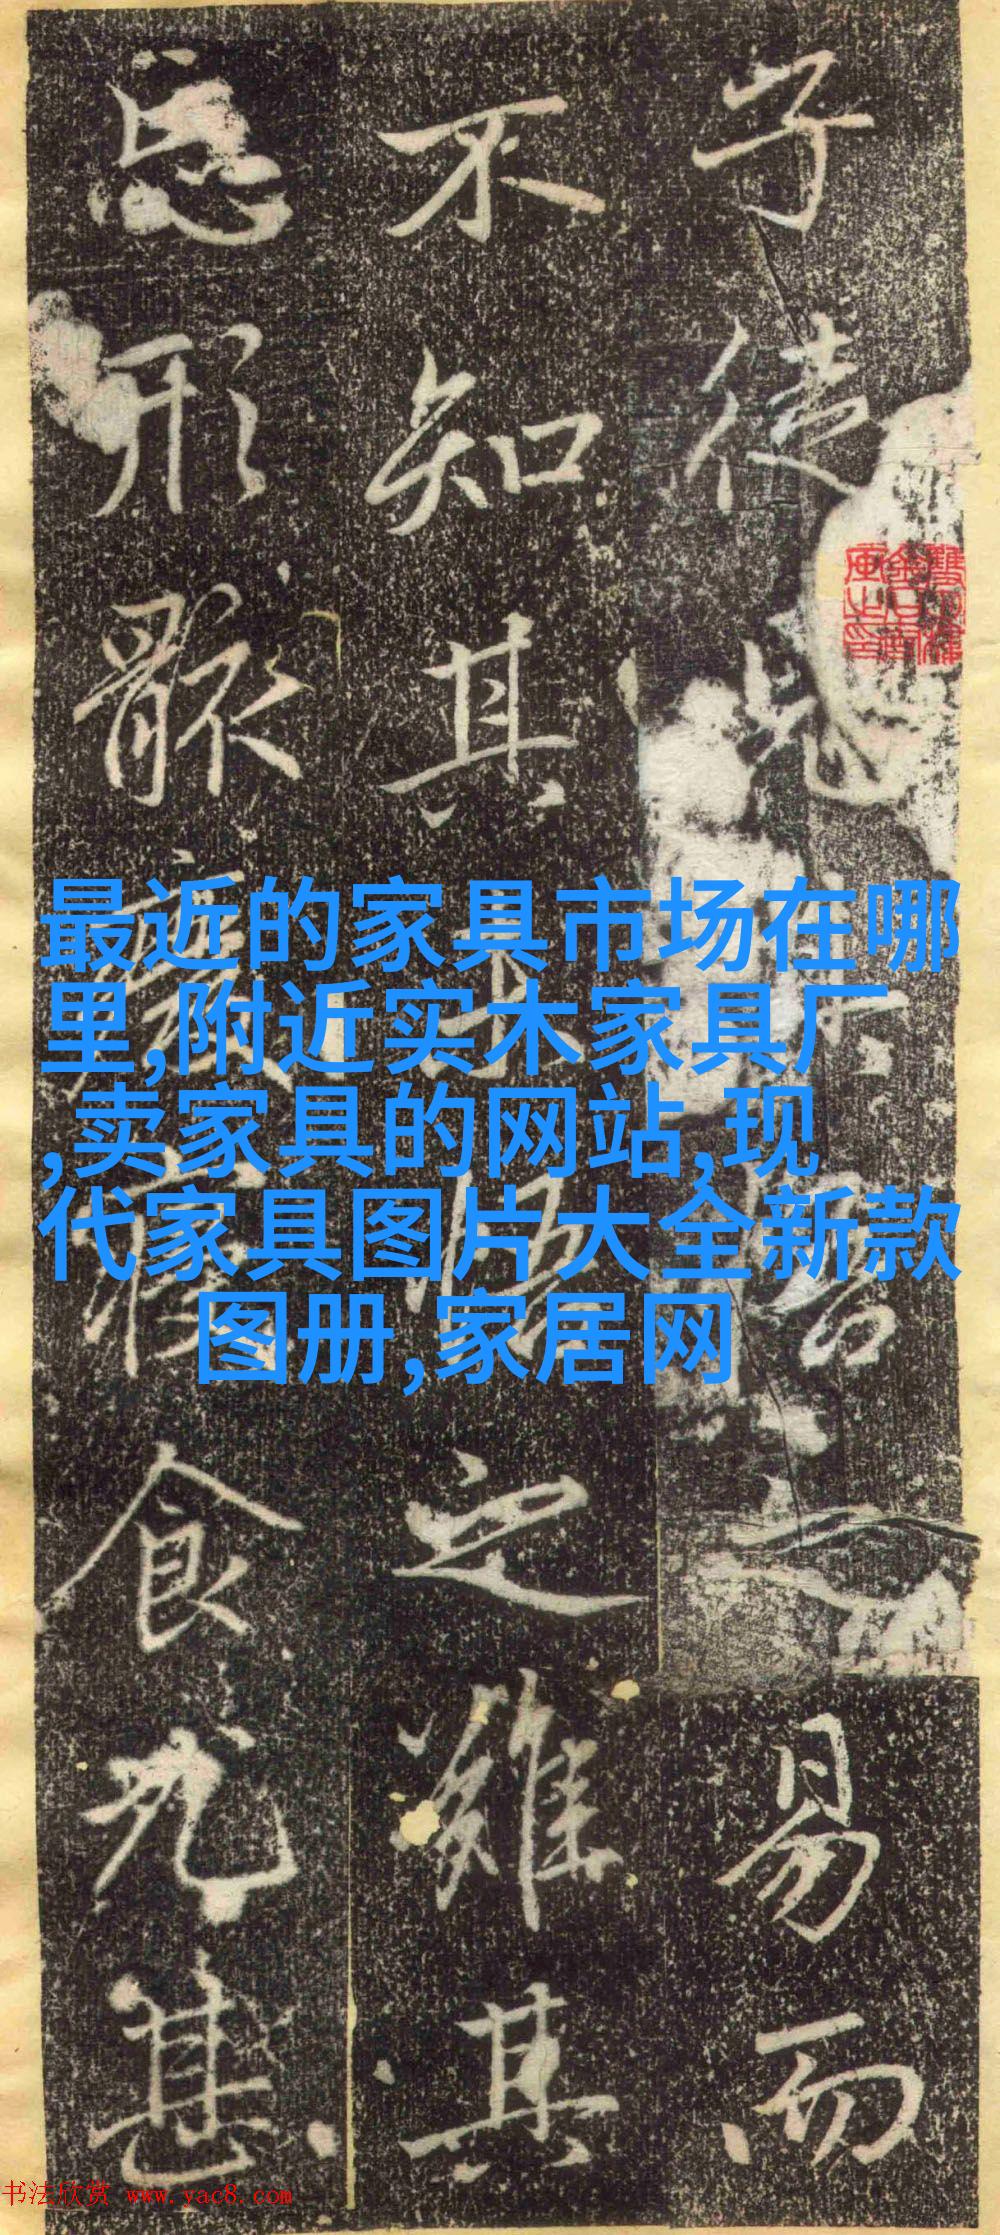 子徒見之易而
不知其悟之難其
忘形骸廢寢食尤甚
最近的家具市场在哪
里,附近实木家具厂
,卖家具的网站,现
代家具图片大全新款
图册,家居网
书法欣赏 www.yac8.com